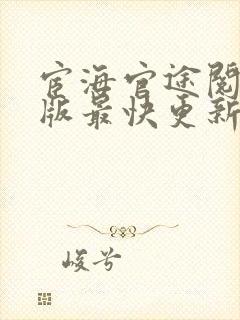 宦海官途阅
版最快更新
峻兮